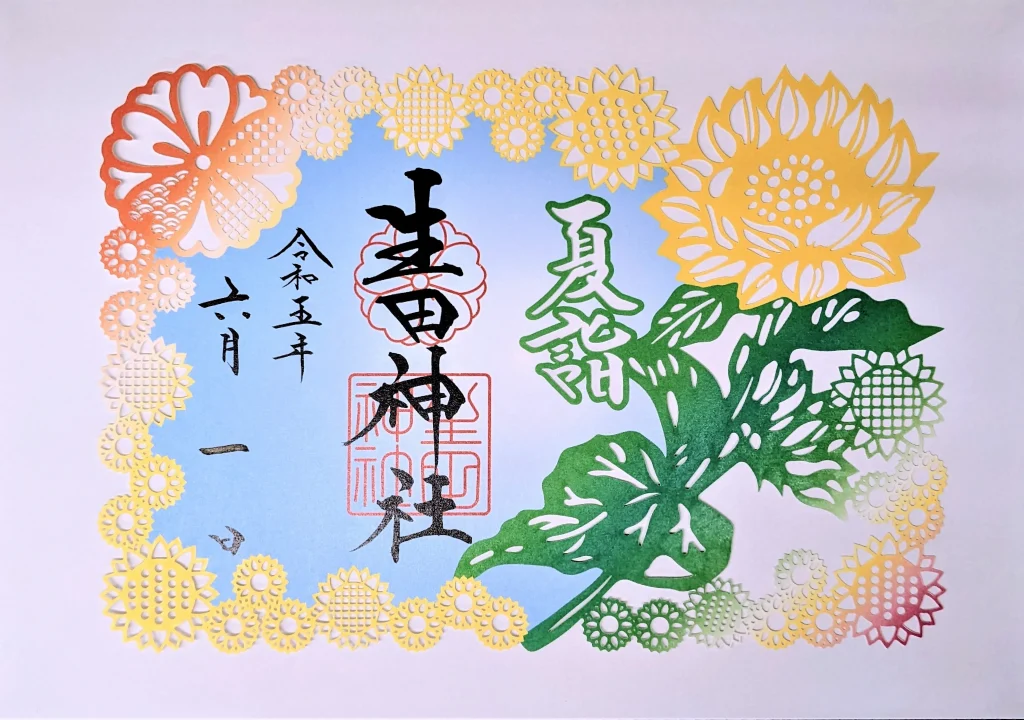 夏詣
生田神社
令和五年
六月一日
生田
神社